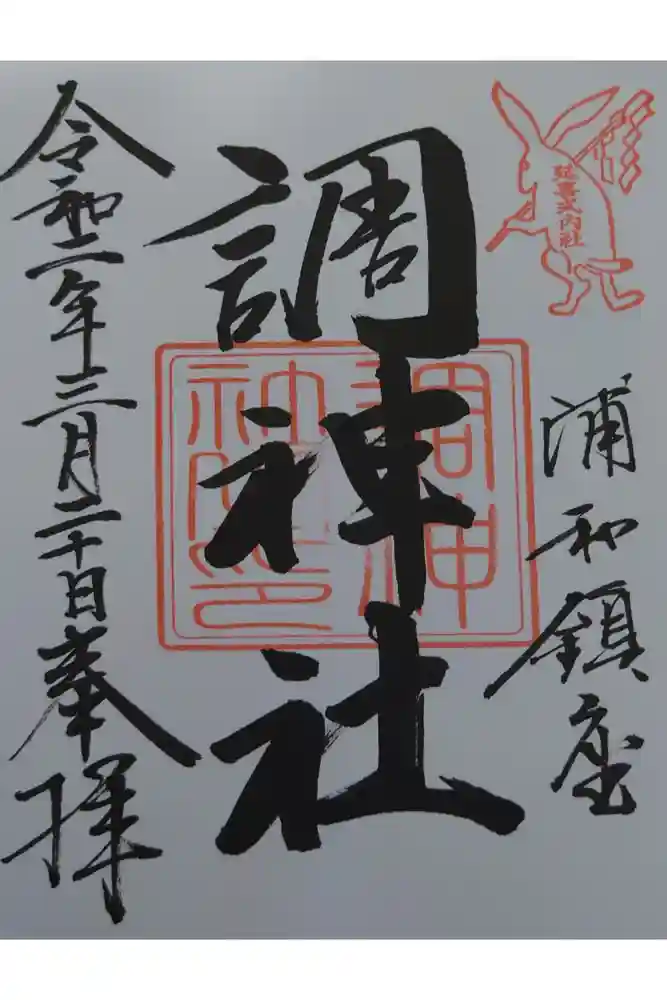 延喜式内社
浦和鎮座
調神社
調神
社之印
令和二年三月二十日奉拝